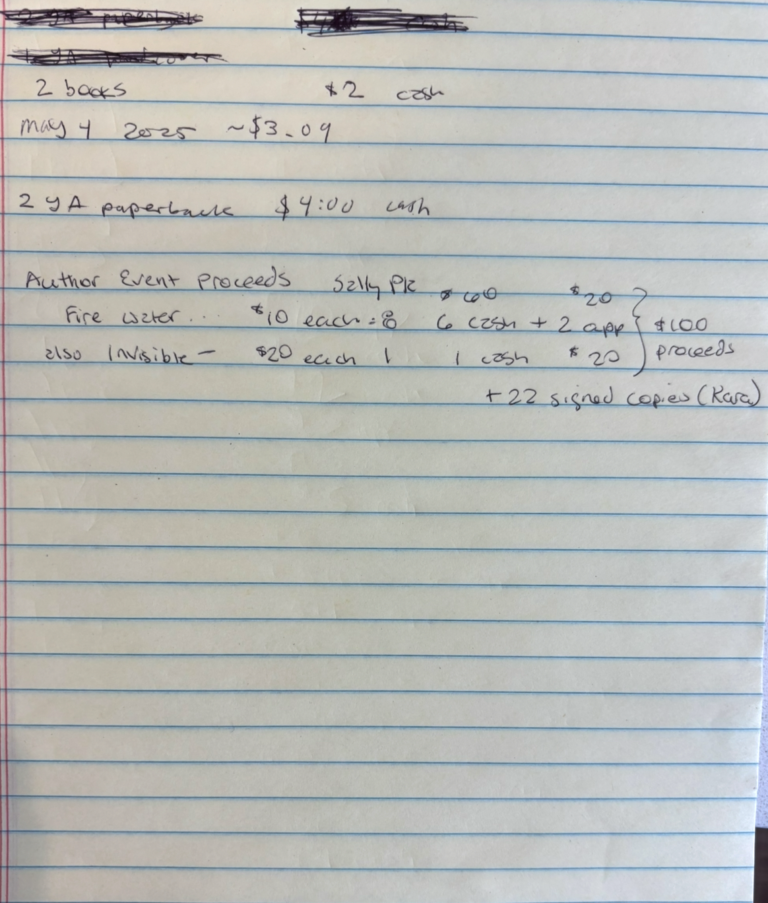 2 books $2 cash
May 4 2025 ~$3.09
2 YA paperback $4:00 cash
Author Event Proceeds Sally PK $60 $20
Fire Water... $10 each = 8 6 cash + 2 app } $100
also Invisible - $20 each 1 1 cash $20 proceeds
+ 22 signed copies (Kara)